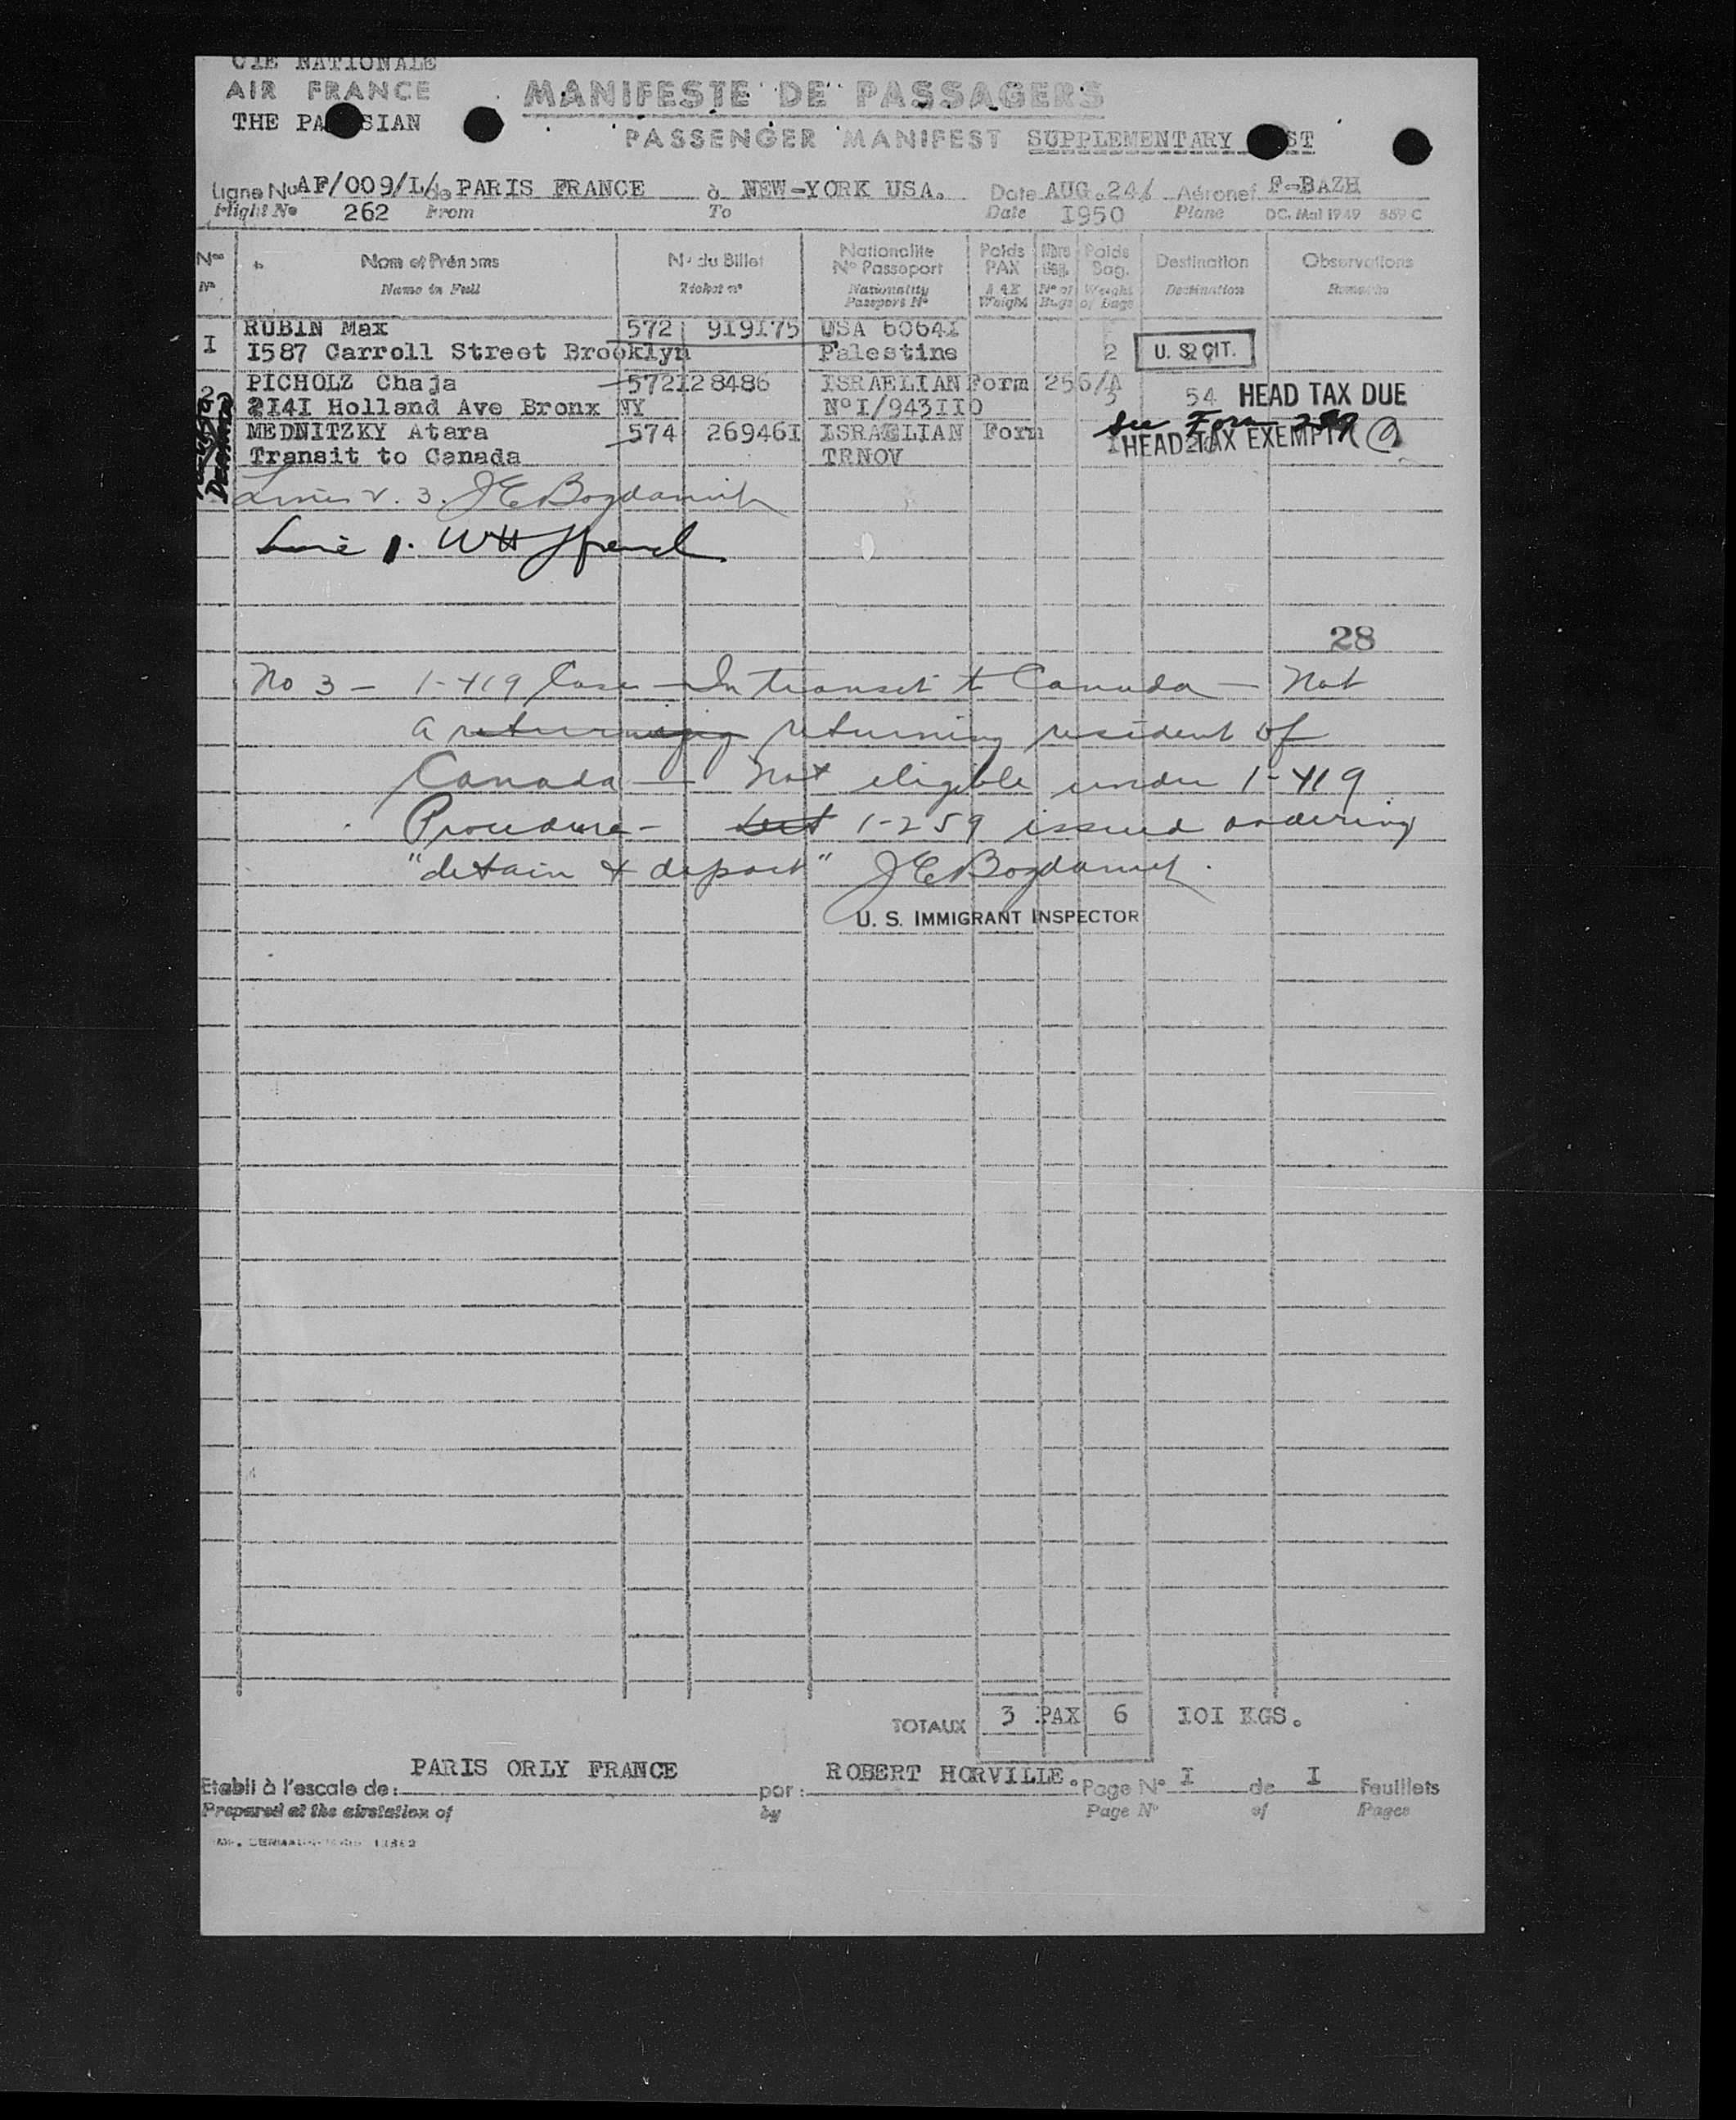 CIE NATIONALE
AIR FRANCE MANIFESTE DE PASSAGERS
THE PA SIAN PASSENGER MANIFEST SUPPLEMENTARY ST
Ligne No AF/009/L/ de PARIS FRANCE à NEW-YORK USA. Date AUG.24/ Aéronef F-BAZH
Flight No 262 From To Date I950 Plane DC. Mai 1949 559 C
Nos Nom et Prénoms No du Billet Nationalite No Passeport Poids PAX Nbre Bag. Poids Bag. Destination Observations
No Name in Full Ticket no Nationality Passport No PAX Weight No of Bags Weight of Bags Destination Remarks
I RUBIN Max 572 919I75 USA 6064I
I587 Carroll Street Brooklyn Palestine 2 U. S. CIT.
2 PICHOLZ Chaja 572I28486 ISRAELIAN Form 256/A
2I4I Holland Ave Bronx NY N°I/943II0 3 54 HEAD TAX DUE
MEDNITZKY Atara 574 26946I ISRAELIAN Form See Form 259
Transit to Canada TRNOV I HEAD TAX EXEMPT 9
Lines 2. 3. J E Bogdanovich
Line 1. WH
28
No 3 - 1-419 Case - In transit to Canada - Not
a returning returning resident of
Canada - Not eligible under 1-419
Procedure - 1-259 issued ordering
"detain & deport" J E Bogdanovich
U. S. IMMIGRANT INSPECTOR
TOTAUX 3 PAX 6 I0I KGS.
Etabli à l'escale de: PARIS ORLY FRANCE par: ROBERT HORVILLE. Page No I de I Feuillets
Prepared at the airstation of by Page No of Pages